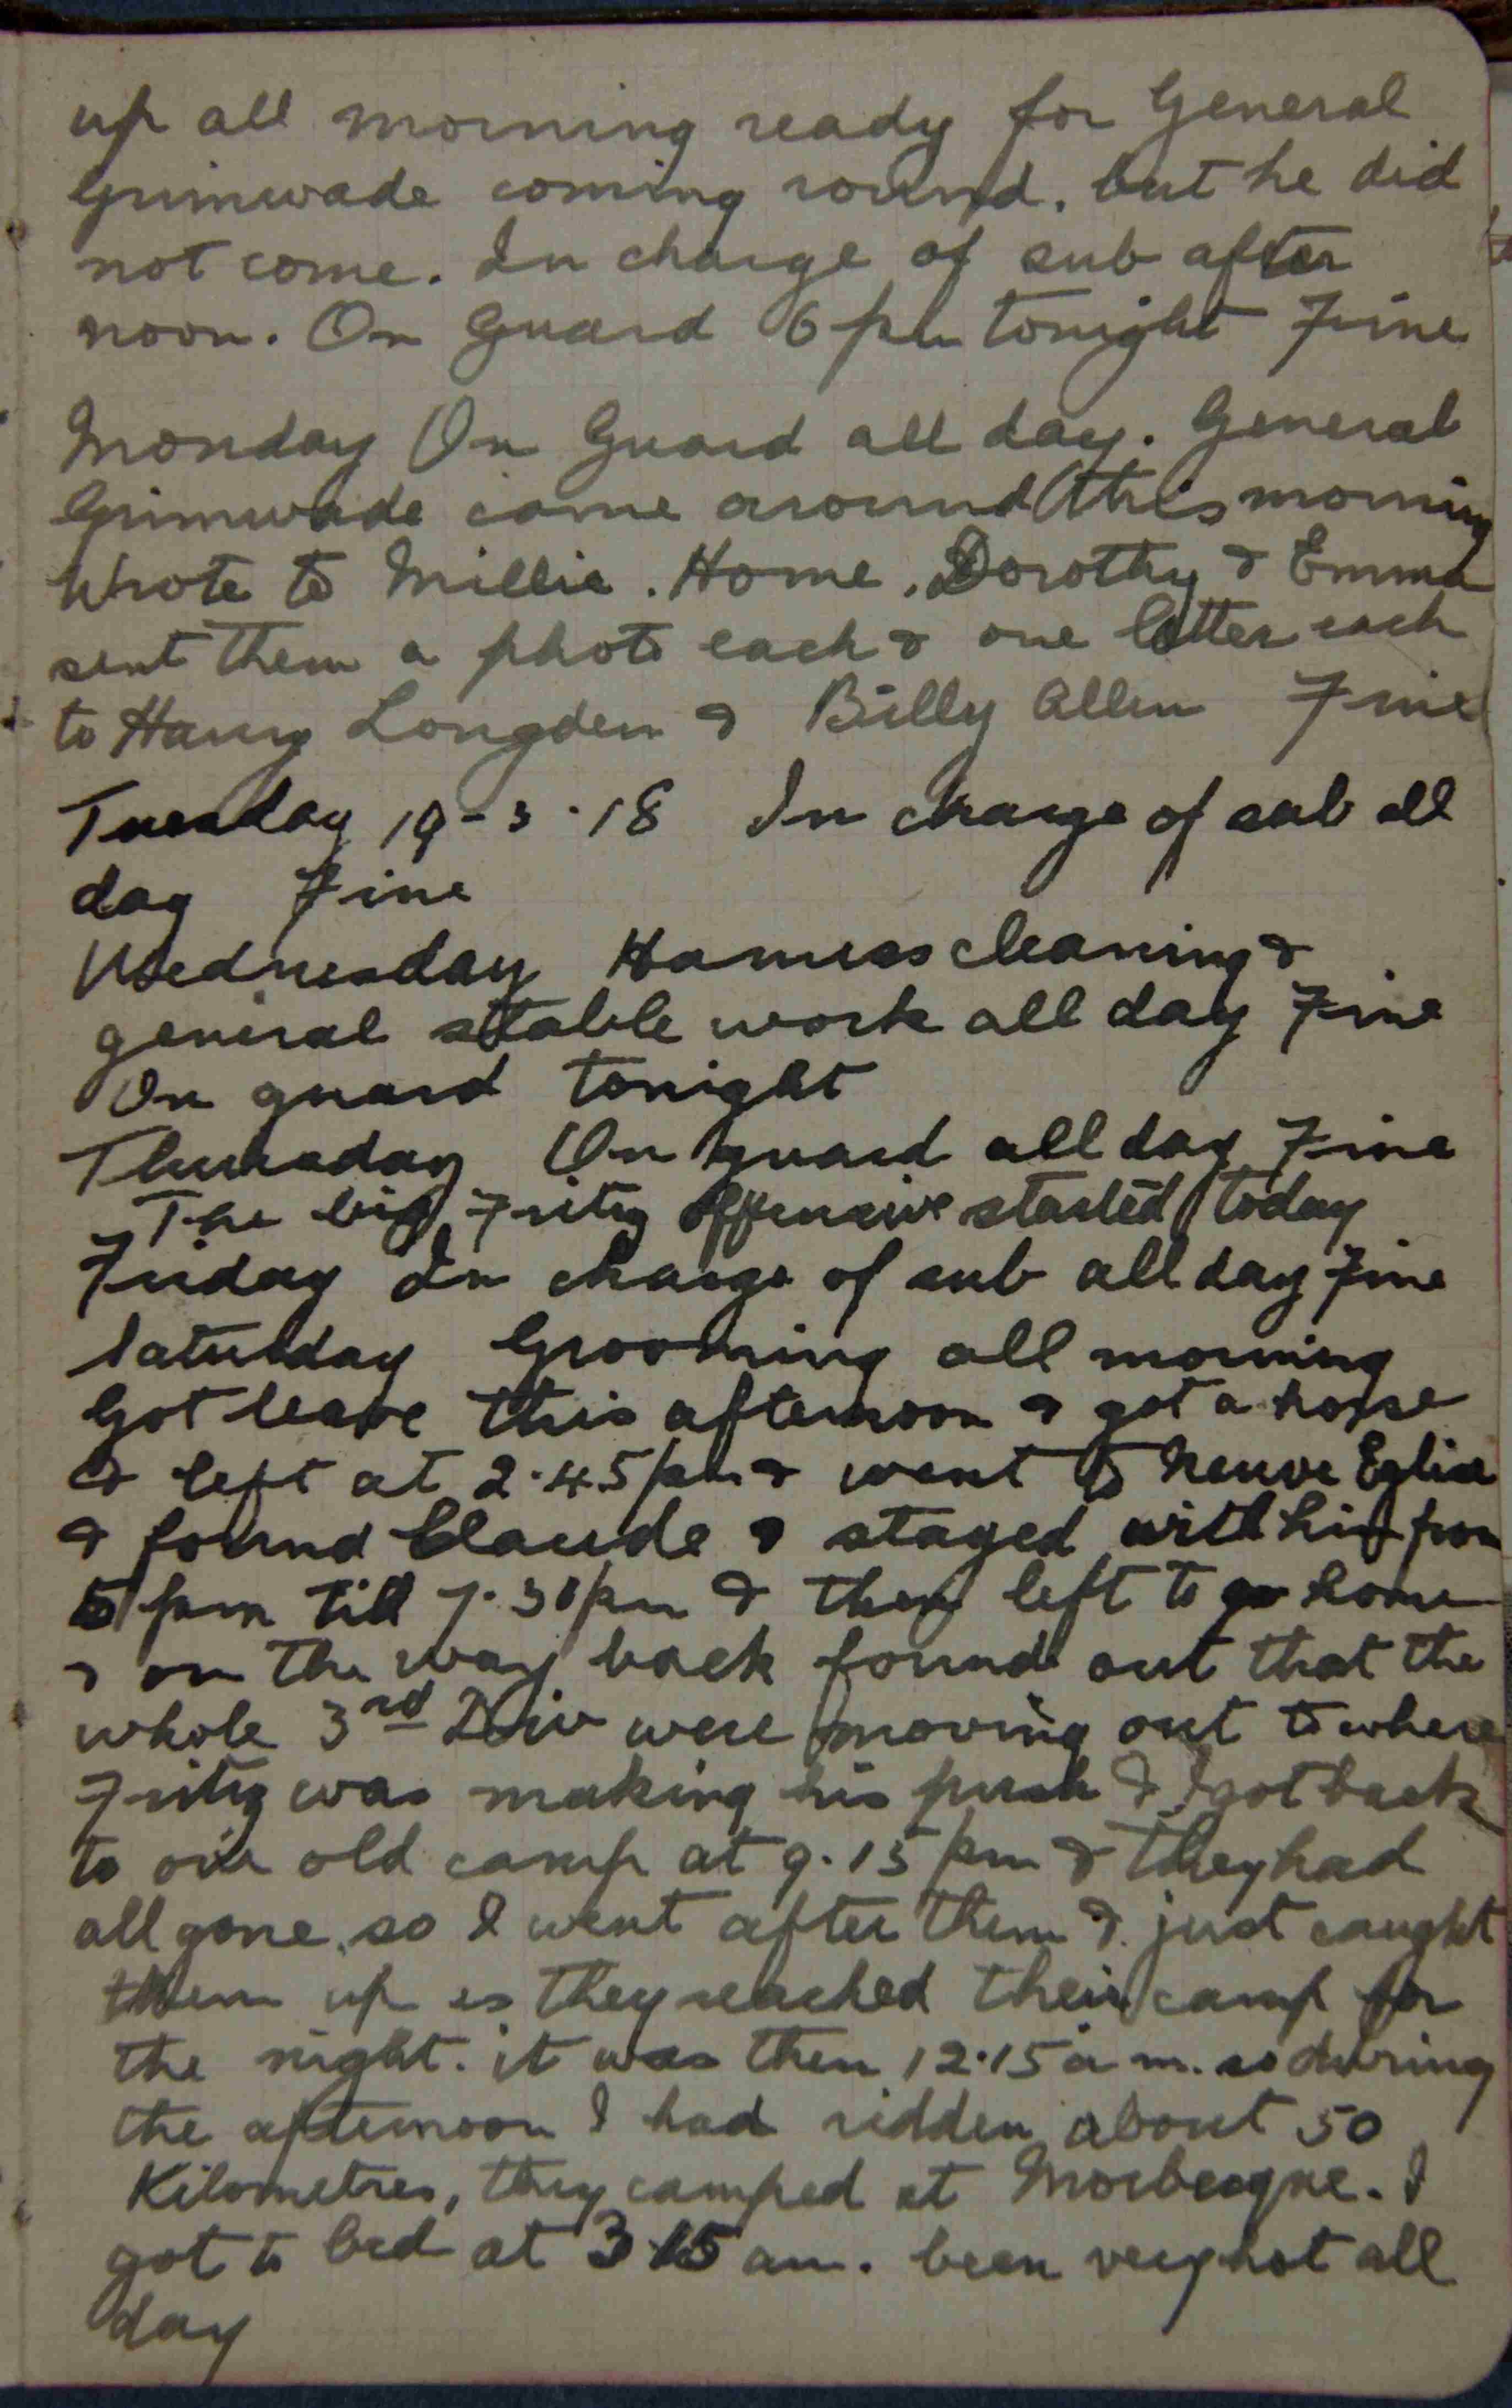 up all morning ready for General
Grimwade coming round. but he did
not come. In charge of sub after
noon. On Guard 6 pm tonight Fine
Monday On Guard all day. General
Grimwade came around this morning
Wrote to Millie. Home. Dorothy & Emma
sent them a photo each & one letter each
to Harry Longden & Billy Allen Fine
Tuesday 19-3-18 In charge of sub all
day Fine
Wednesday Harness cleaning &
general stable work all day Fine
On guard tonight
Thursday On guard all day Fine
The big Fritz offensive started today
Friday In charge of sub all day Fine
Saturday Grooming all morning
Got leave this afternoon & got a horse
& left at 2.45 pm & went to Neuve Eglise
& found Claude & stayed with him from
5 pm till 7.30 pm & then left to go home
& on the way back found out that the
whole 3rd Div were moving out to where
Fritz was making his push & I got back
to our old camp at 9.15 pm & they had
all gone. so I went after them & just caught
them up as they reached their camp for
the night. it was then 12.15 a m. so during
the afternoon I had ridden about 50
Kilometres, they camped at Morbecque. I
got to bed at 3.15 am. been very hot all
day